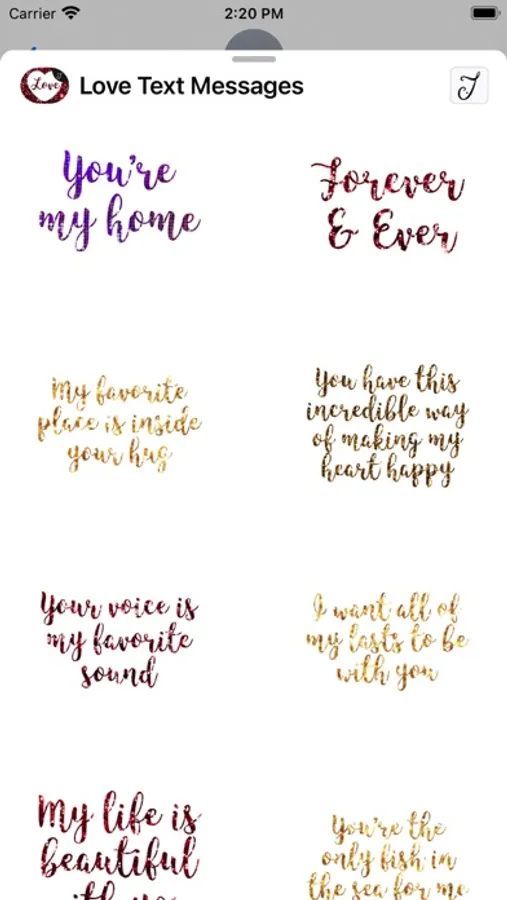 Carrier 2:20 PM
Love Love Text Messages
You're
my home
Forever
& Ever
My favorite
place is inside
your hug
You have this
incredible way
of making my
heart happy
Your voice is
my favorite
sound
I want all of
my lasts to be
with you
My life is
beautiful
You're the
only fish in
the sea for me